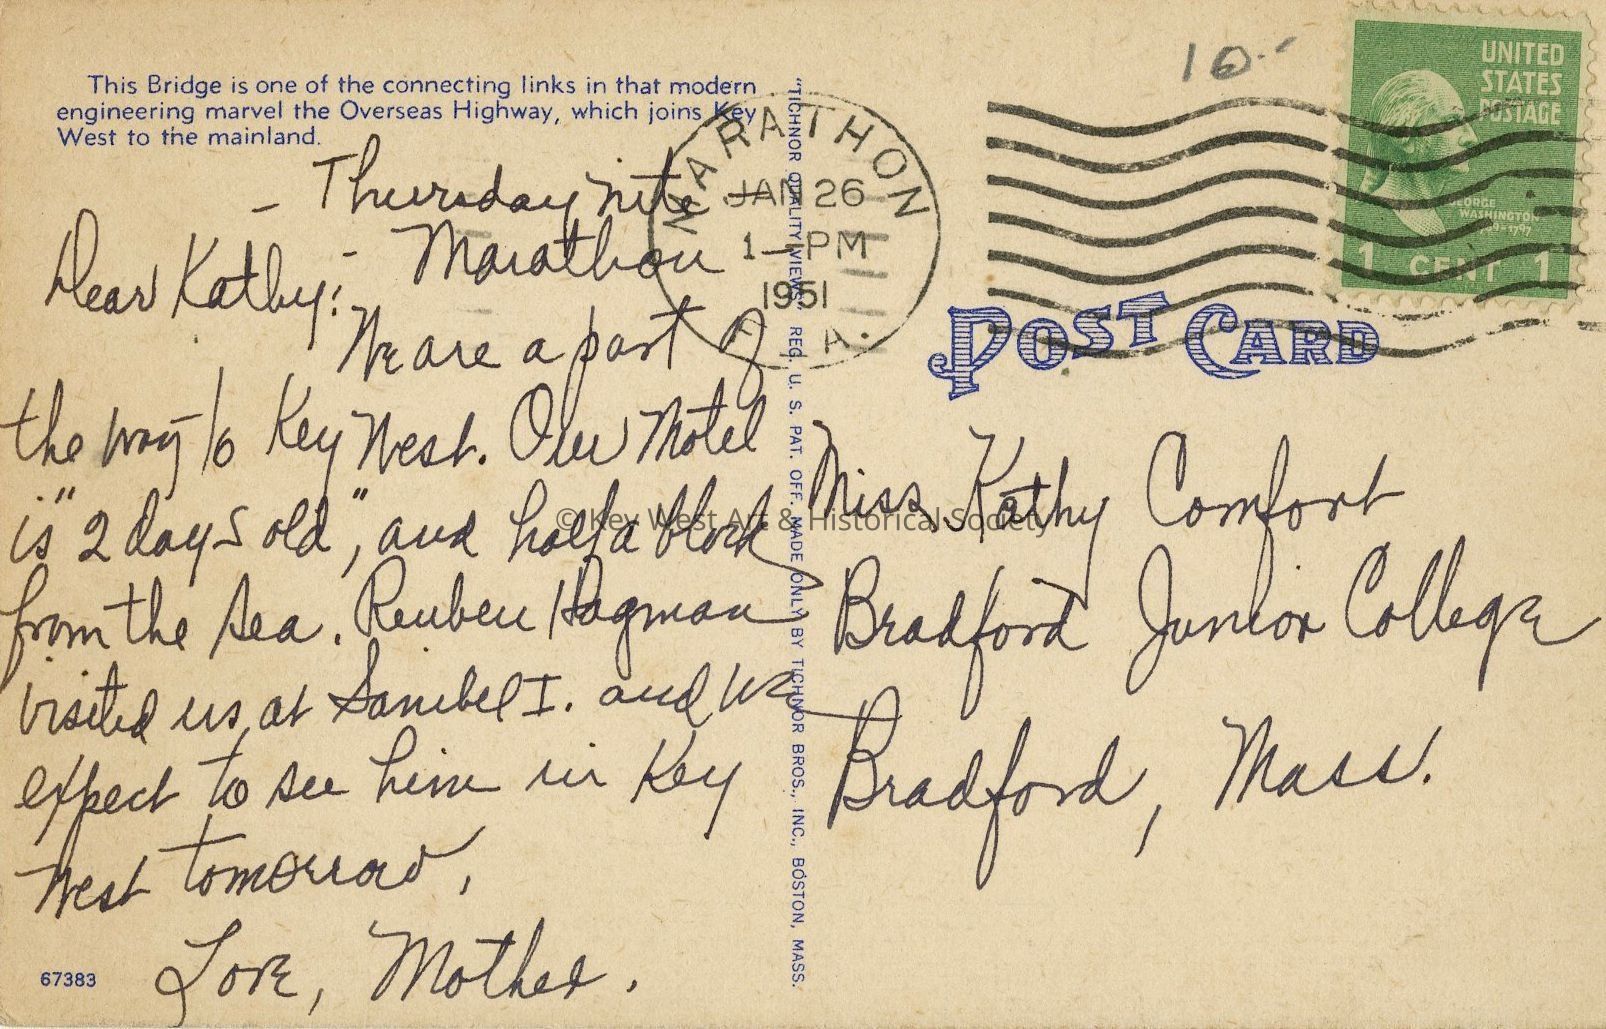 This Bridge is one of the connecting links in that modern
engineering marvel the Overseas Highway, which joins Key
West to the mainland.
- Thursday nite
Marathon
Dear Kathy:-
We are a part of
the way to Key West. Our Motel
is "2 days old", and half a block
from the sea. Reuben Hagman
visited us at Sanibel I. and we
expect to see him in Key
West tomorrow,
Love, Mother.
67383
"TICHNOR QUALITY VIEWS," REG. U. S. PAT. OFF. MADE ONLY BY TICHNOR BROS., INC., BOSTON, MASS.
MARATHON
JAN 26
1-PM
1951
LA.
10.-
UNITED
STATES
POSTAGE
GEORGE
WASHINGTON
1789-1797
1 CENT 1
POST CARD
Miss Kathy Comfort
Bradford Junior College
Bradford, Mass.
© Key West Art & Historical Society